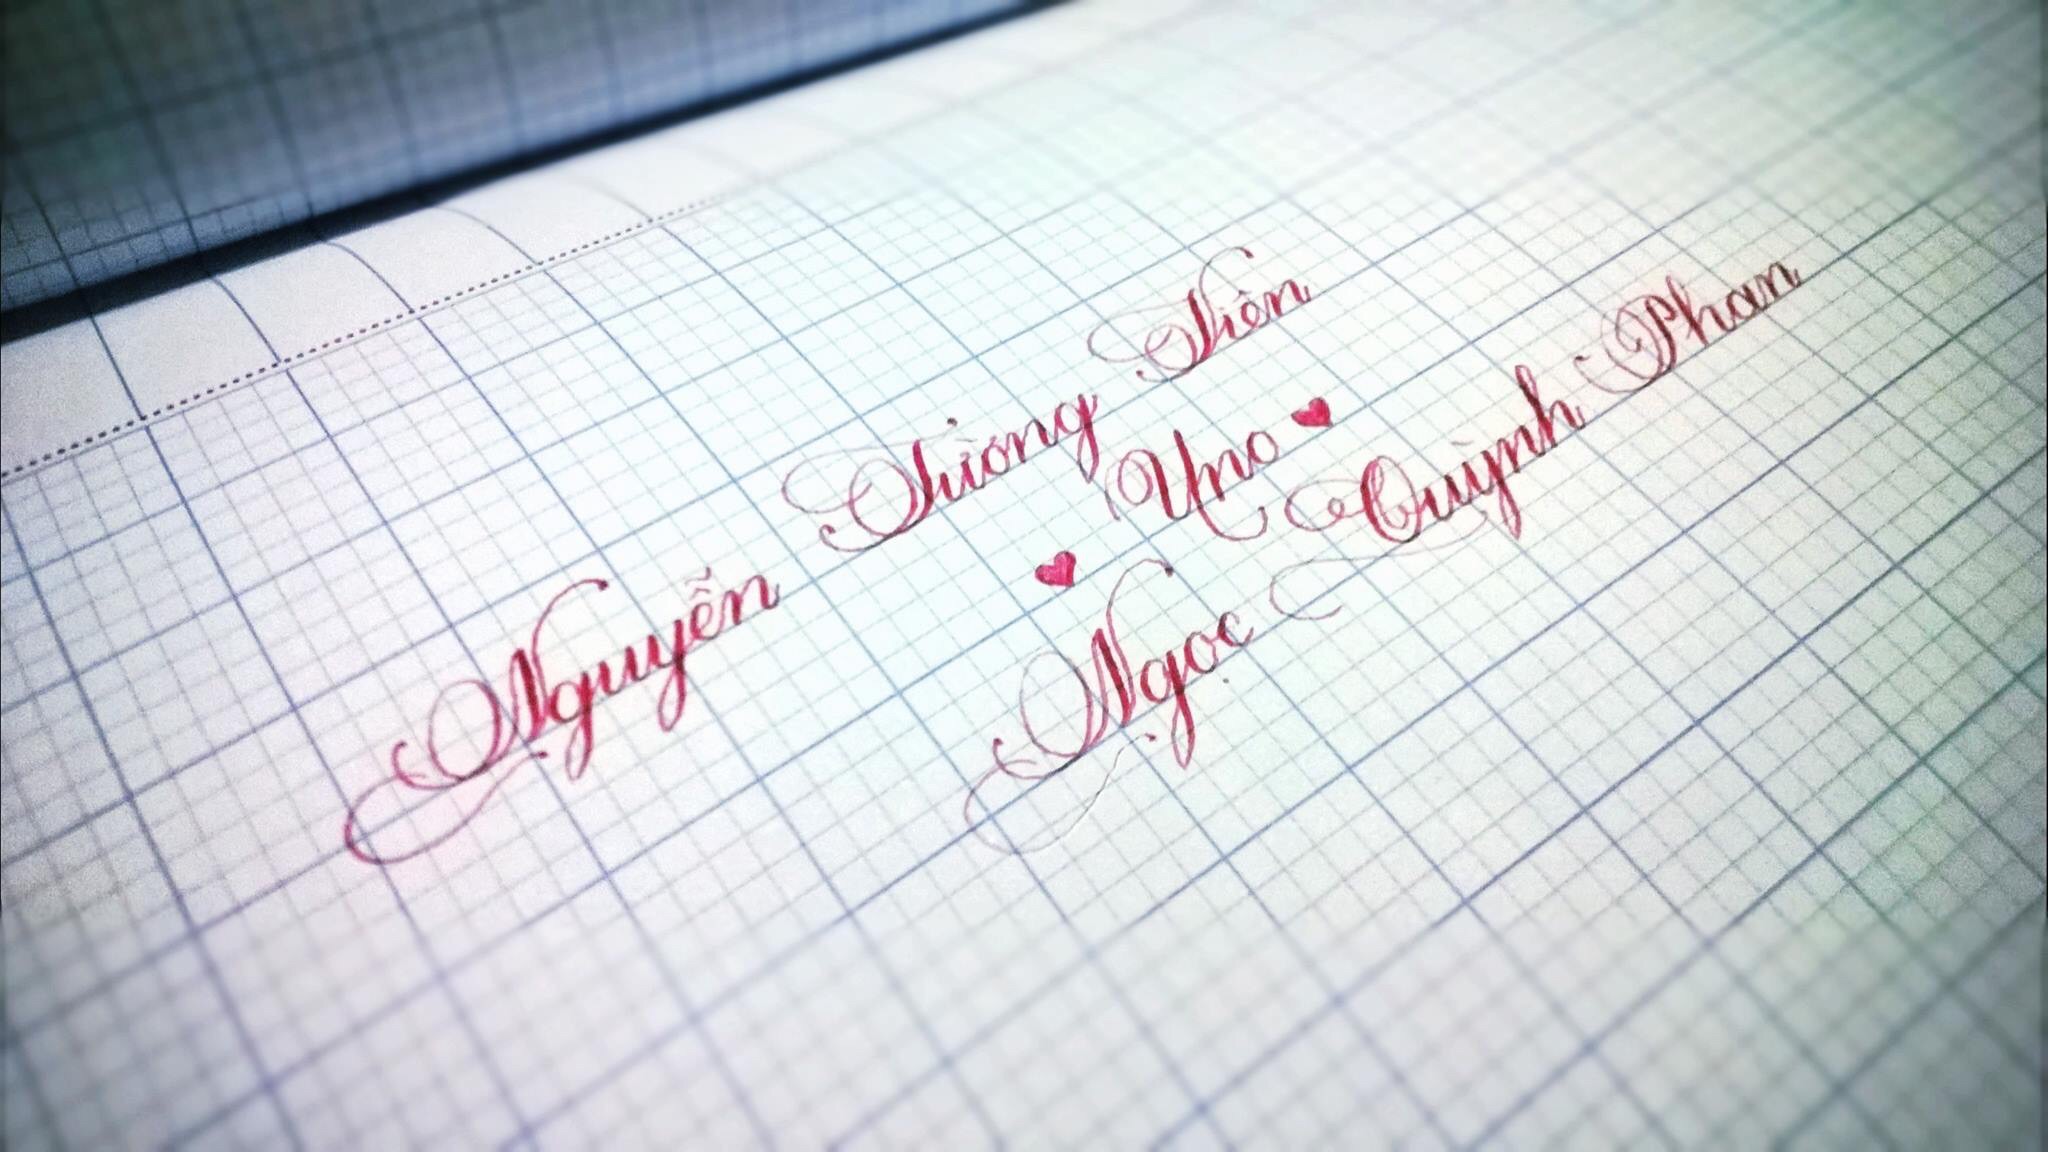 Nguyễn Tường Tiên
♥ Uno ♥
Ngọc Quỳnh Phan